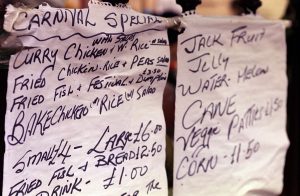 CARNIVAL Special
CURRY Chicken W. Rice Salad
FRIED Chicken. Rice & Peas Salad
FRIED Fish & Festival
BAKE Chicken Rice Salad
SMALL 4 - Large £6.00
FRIED Fish & BREAD £2.50
DRINK - £1.00
FOR THE
JACK FRUIT
JELLY
WATER. MELON
CANE
Veggie PATTIES £1.50
CORN - £1.50